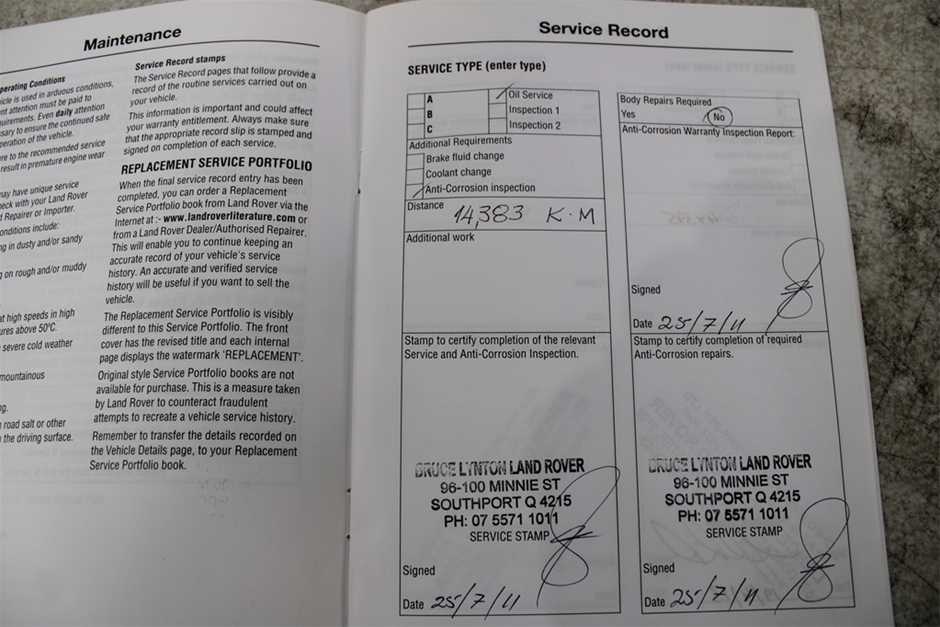 Maintenance
perating Conditions
hicle is used in arduous conditions,
nt attention must be paid to
quirements. Even daily attention
ssary to ensure the continued safe
peration of the vehicle.
ere to the recommended service
result in premature engine wear
may have unique service
heck with your Land Rover
d Repairer or Importer.
onditions include:
ng in dusty and/or sandy
g on rough and/or muddy
at high speeds in high
ures above 50°C.
severe cold weather
mountainous
ng.
road salt or other
the driving surface.
Service Record stamps
The Service Record pages that follow provide a
record of the routine services carried out on
your vehicle.
This information is important and could affect
your warranty entitlement. Always make sure
that the appropriate record slip is stamped and
signed on completion of each service.
REPLACEMENT SERVICE PORTFOLIO
When the final service record entry has been
completed, you can order a Replacement
Service Portfolio book from Land Rover via the
Internet at :- www.landroverliterature.com or
from a Land Rover Dealer/Authorised Repairer.
This will enable you to continue keeping an
accurate record of your vehicle's service
history. An accurate and verified service
history will be useful if you want to sell the
vehicle.
The Replacement Service Portfolio is visibly
different to this Service Portfolio. The front
cover has the revised title and each internal
page displays the watermark 'REPLACEMENT'.
Original style Service Portfolio books are not
available for purchase. This is a measure taken
by Land Rover to counteract fraudulent
attempts to recreate a vehicle service history.
Remember to transfer the details recorded on
the Vehicle Details page, to your Replacement
Service Portfolio book.
Service Record
SERVICE TYPE (enter type)
A
B
C
Oil Service
Inspection 1
Inspection 2
Additional Requirements
Brake fluid change
Coolant change
Anti-Corrosion inspection
Distance 14,383 K·M
Additional work
Stamp to certify completion of the relevant
Service and Anti-Corrosion Inspection.
BRUCE LYNTON LAND ROVER
96-100 MINNIE ST
SOUTHPORT Q 4215
PH: 07 5571 1011
SERVICE STAMP
Signed
Date 25/7/11
Body Repairs Required
Yes No
Anti-Corrosion Warranty Inspection Report:
Signed
Date 25/7/11
Stamp to certify completion of required
Anti-Corrosion repairs.
BRUCE LYNTON LAND ROVER
96-100 MINNIE ST
SOUTHPORT Q 4215
PH: 07 5571 1011
SERVICE STAMP
Signed
Date 25/7/11